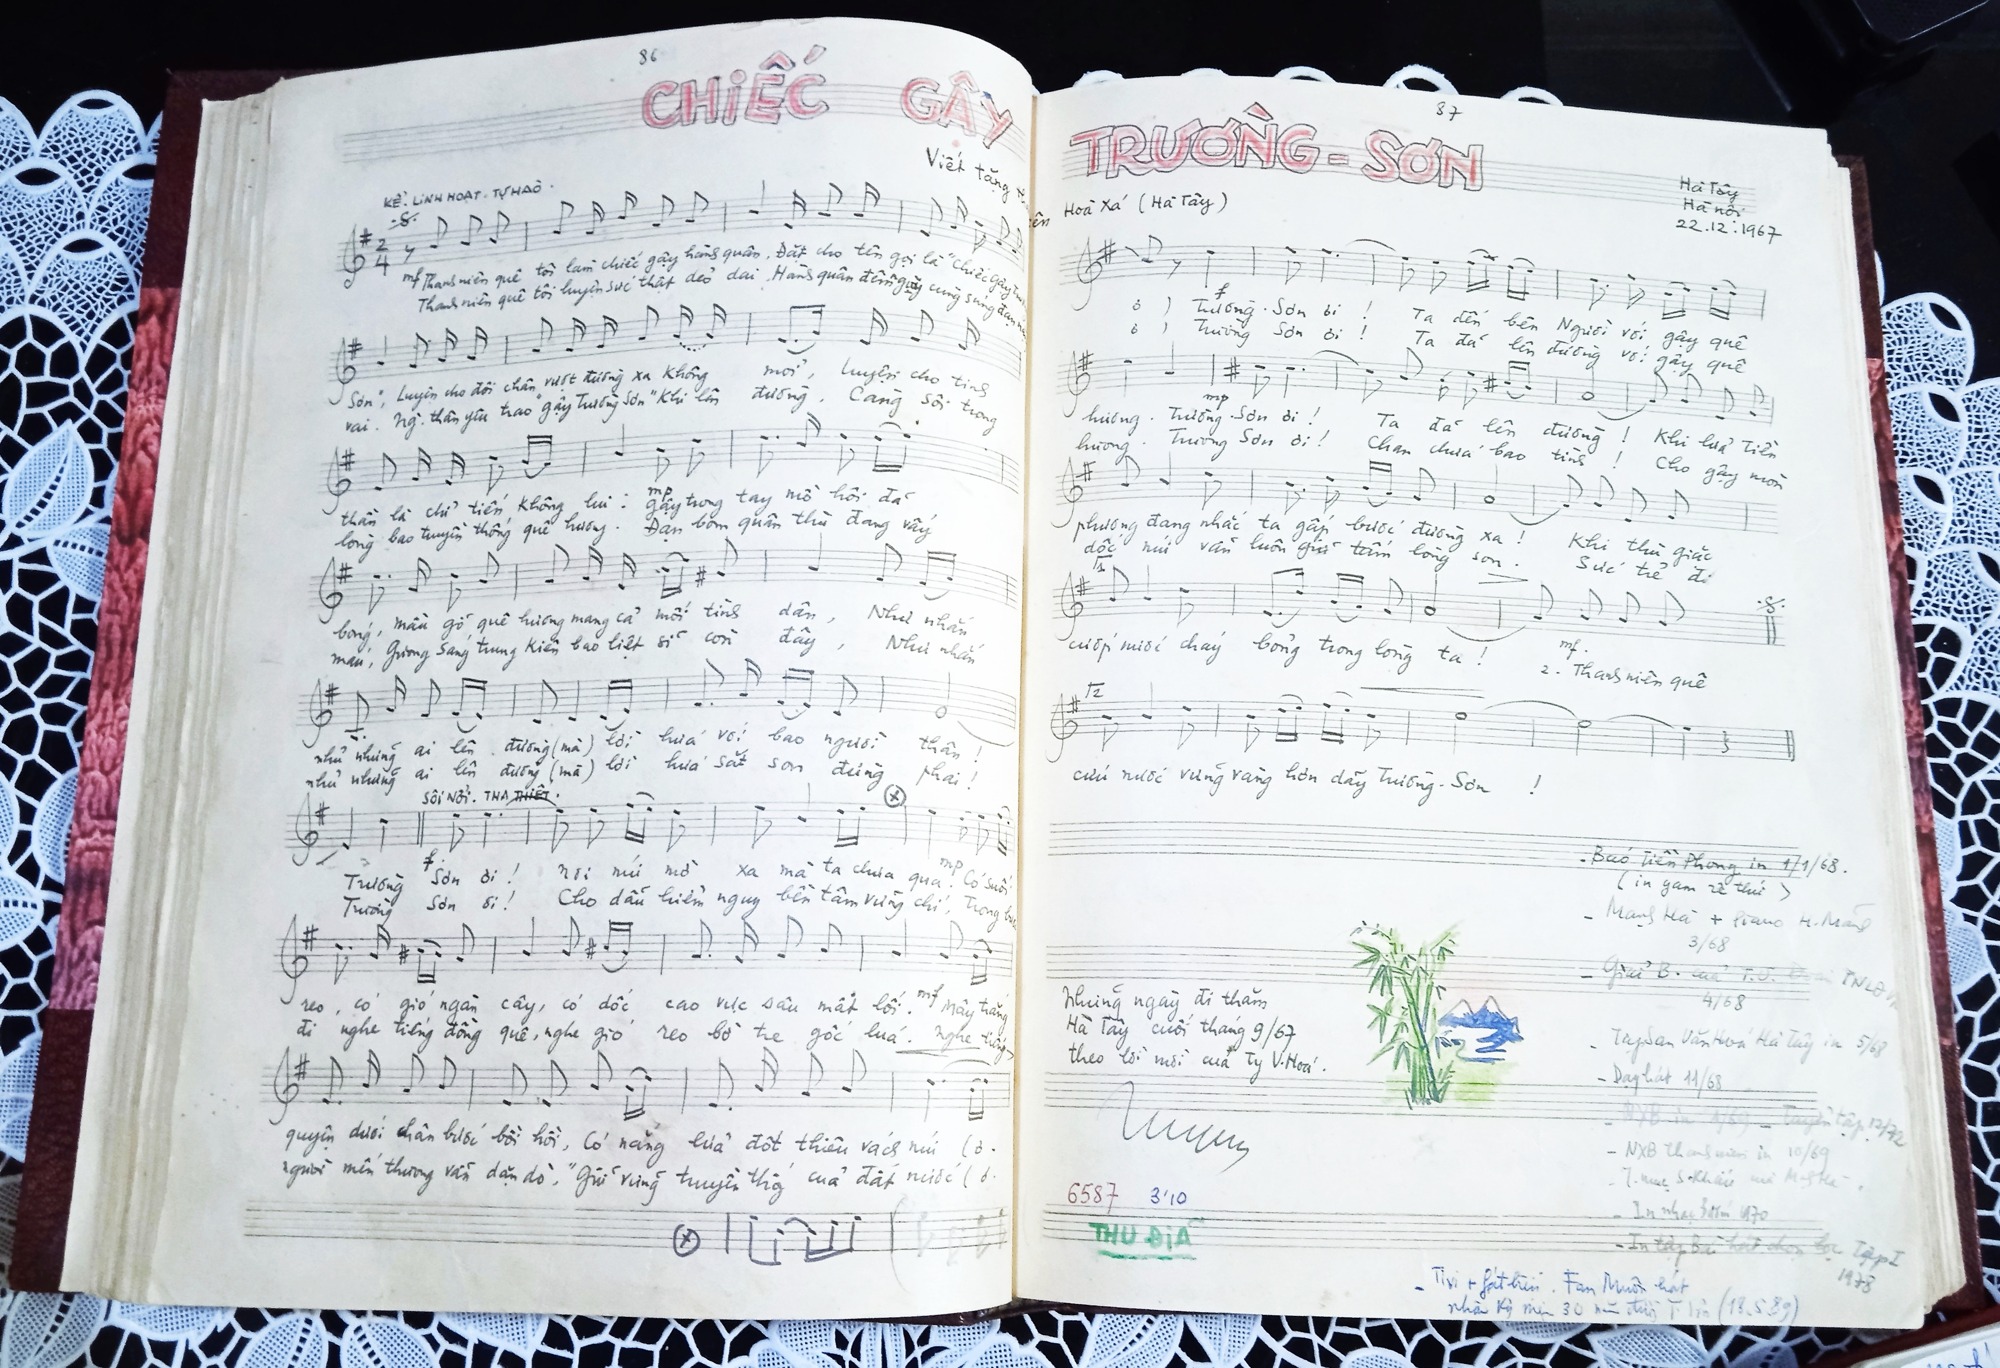 86
CHIẾC GẬY
Viết tặng
KỂ. LINH HOẠT. TỰ HÀO.
2
4
mf Thanh niên quê tôi làm chiếc gậy hành quân. Đặt cho tên gọi là "Chiếc gậy Trường
Thanh niên quê tôi luyện sức thật dẻo dai. Hành quân đêm ngày cùng súng đạn
Sơn", Luyện cho đôi chân vượt đường xa không mỏi, luyện cho tinh
vai. Ng. thân yêu trao "gậy Trường Sơn" khi lên đường. Càng sôi trong
thần là chỉ tiến không lui: mp gậy trong tay mồ hôi đã
lòng bao truyền thống quê hương. Đạn bom quân thù đang vấy
bóng, mầu gỗ quê hương mang cả mối tình dân, Như nhắn
máu, Gương sáng trung kiên bao liệt sĩ còn đây, Như nhắn
nhủ những ai lên đường (mà) lời hứa với bao người thân!
nhủ những ai lên đường (mà) lời hứa sắt son đừng phai!
SÔI NỔI. THA THIẾT.
Trường f Sơn ơi! nơi núi mờ xa mà ta chưa qua. mp Có suối
Trường Sơn ơi! Cho dẫu hiểm nguy bền tâm vững chí, Trong
reo, có gió ngàn cây, có dốc cao vực sâu mất lối. mf Mây trắng
đi nghe tiếng đồng quê, nghe gió reo bờ tre gốc lúa. nghe tiếng
quyện dưới chân bước bồi hồi, Có nắng lửa đốt thiêu vách núi (ơ.
người mến thương vẫn dặn dò, "Giữ vững truyền thống của đất nước (ơ.
87
TRƯỜNG - SƠN
Hoà Xá (Hà Tây)
Hà Tây
Hà nội
22.12.1967
ơ) f Trường - Sơn ơi! Ta đến bên Người với gậy quê
ơ) Trường Sơn ơi! Ta đã lên đường với gậy quê
hương. mp Trường - Sơn ơi! Ta đã lên đường! Khi lửa Tiền
hương. Trường Sơn ơi! Chan chứa bao tình! Cho gậy mòn
phương đang nhắc ta gấp bước đường xa! Khi thù giặc
dốc núi vẫn luôn giữ tấm lòng son. Sức trẻ đi
1
cướp nước cháy bỏng trong lòng ta! mf. 2. Thanh niên quê
2
cứu nước vững vàng hơn dãy Trường - Sơn!
- Báo Tiền Phong in 1/1/68.
- Mạnh Hà + piano H. Mãng
3/68
- Giải B. của T.Ư. TNLĐ
4/68
Những ngày đi thăm
Hà Tây cuối tháng 9/67
theo lời mời của Ty V. Hoá.
- Tập San Văn Hoá Hà Tây in 5/68
- Dạy hát 11/68
- NXB in 4/69 - Tuyển tập 12/72
- NXB Thanh niên in 10/69
6587 3'10
THU ĐĨA
- In tập Bài hát chọn lọc Tập I
1978
nhân kỷ niệm 30 năm (18.5.89)